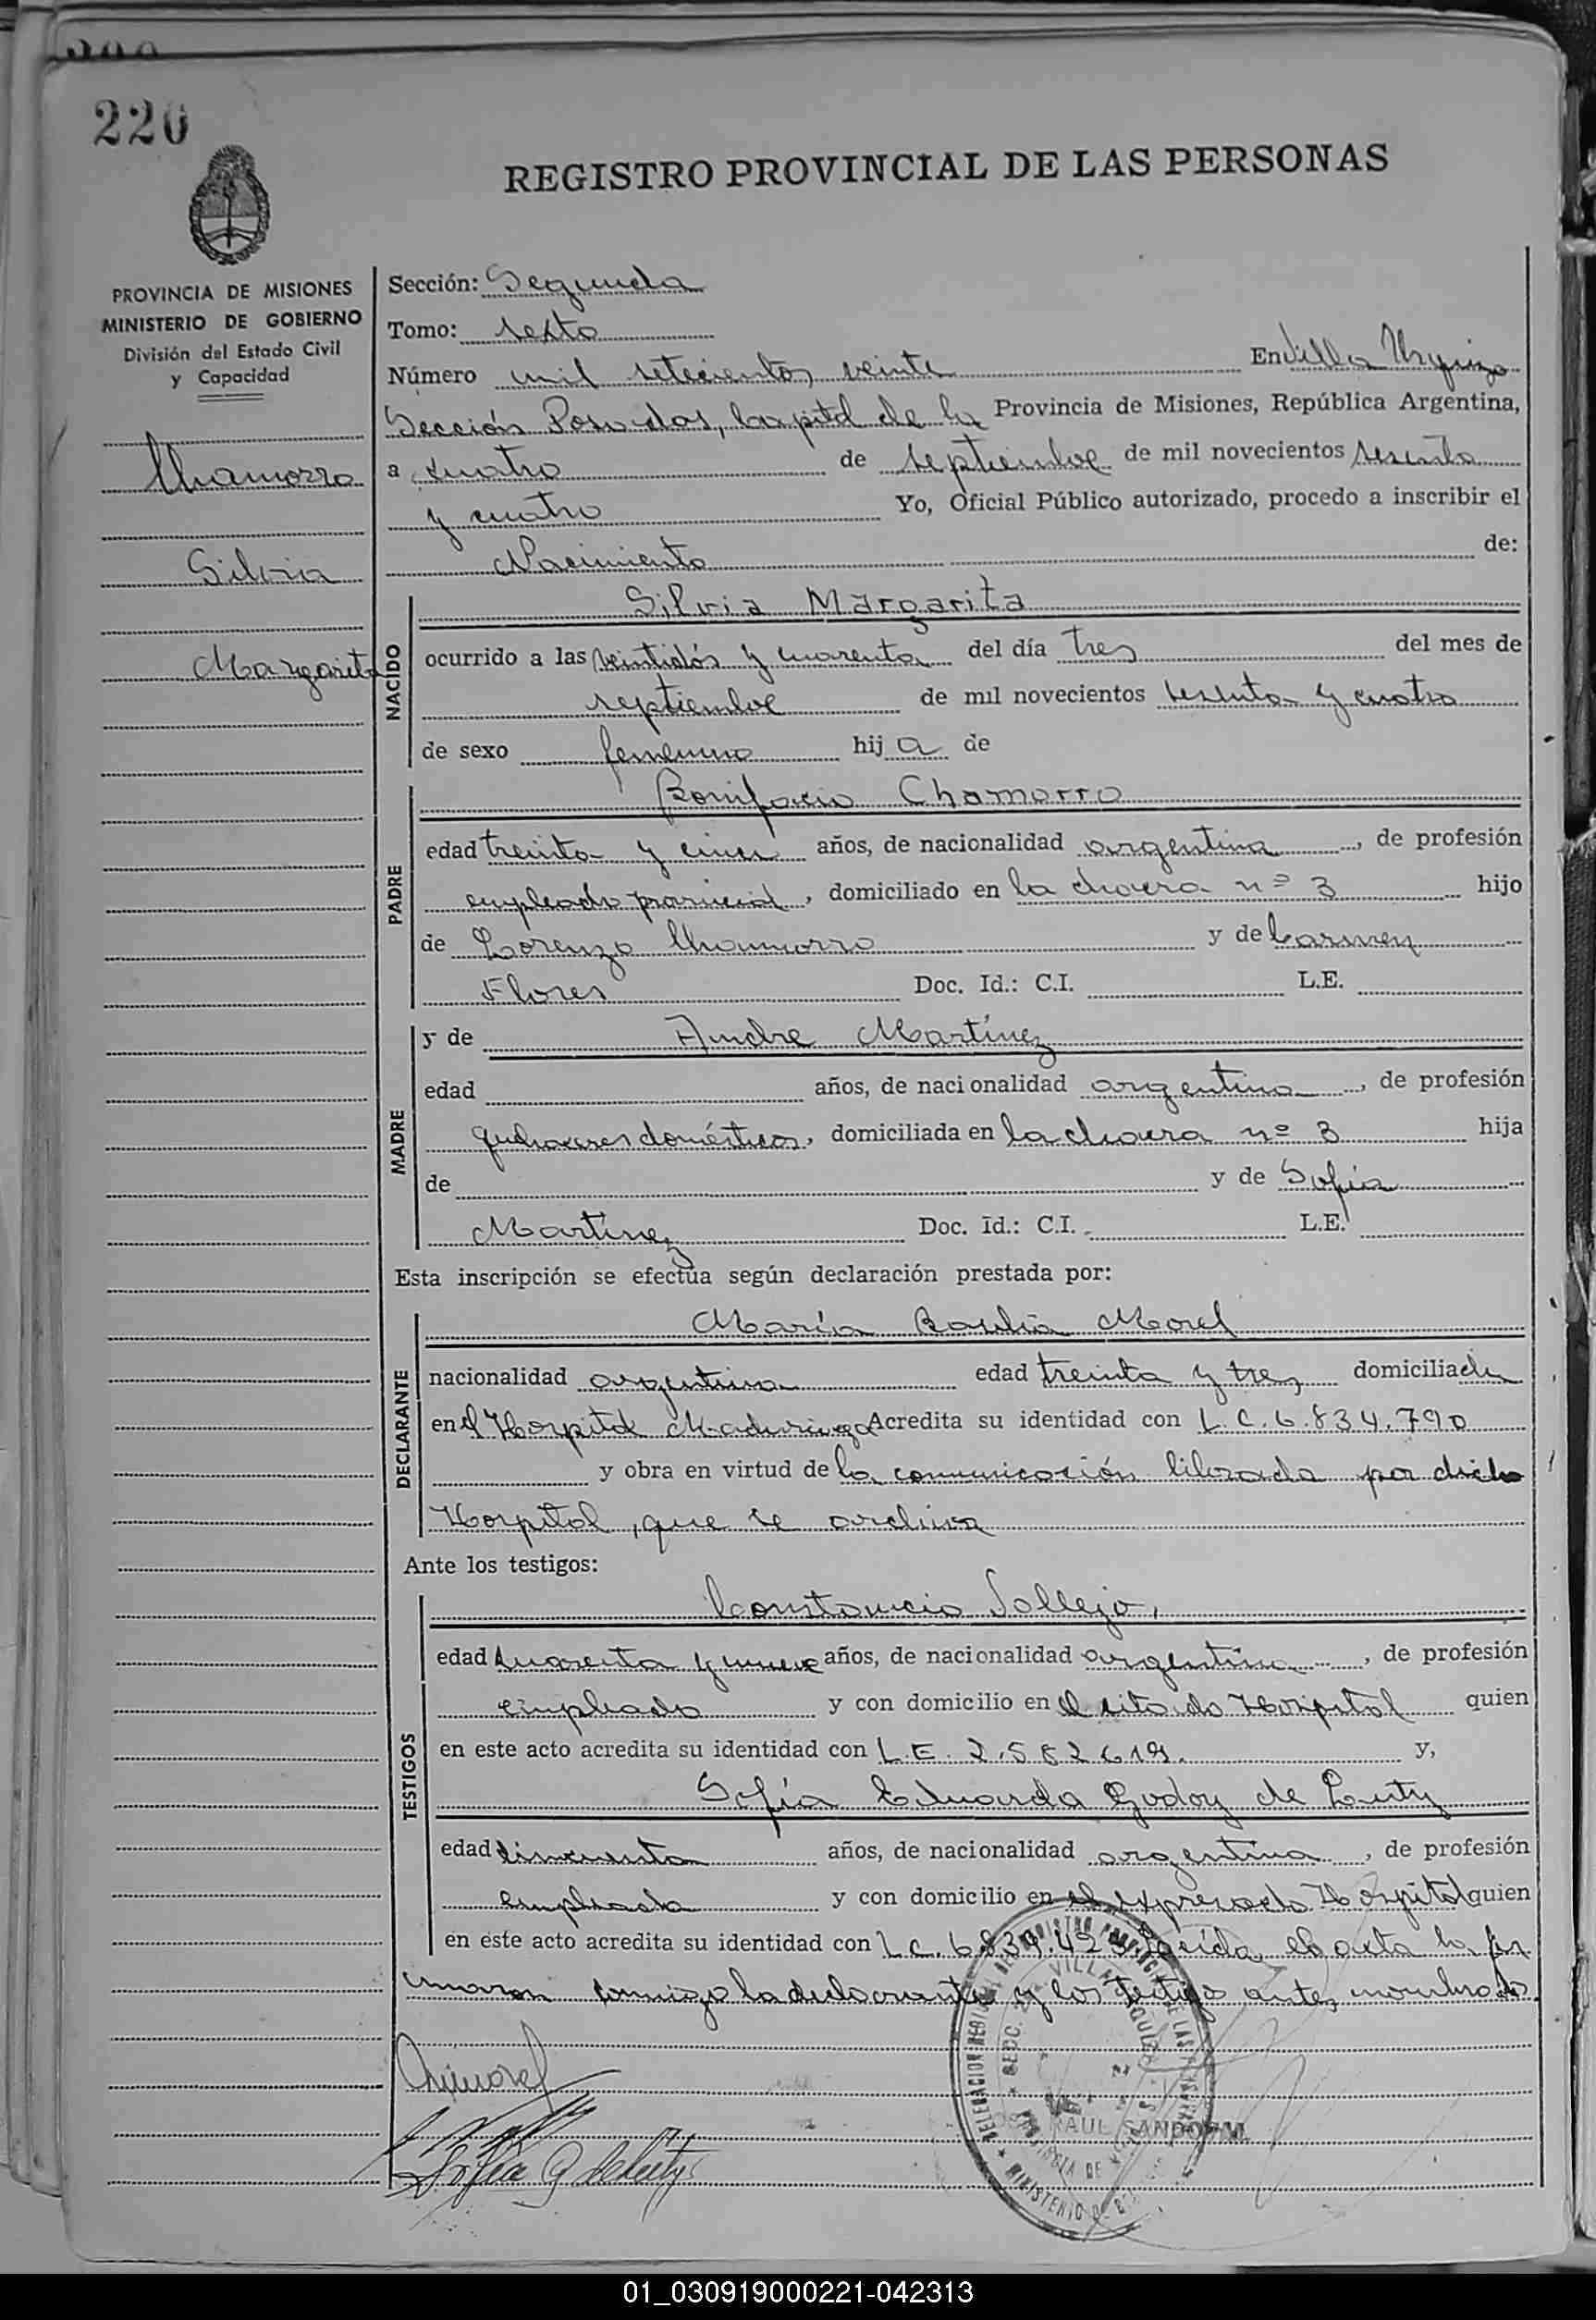 220
REGISTRO PROVINCIAL DE LAS PERSONAS
PROVINCIA DE MISIONES
MINISTERIO DE GOBIERNO
División del Estado Civil
y Capacidad
Chamorro
Silvia
Margarita
Sección: Segunda
Tomo: sexto
Número mil setecientos veinte En Villa Urquiza
Sección Posadas, Capital de la Provincia de Misiones, República Argentina,
a cuatro de septiembre de mil novecientos sesenta
y cuatro Yo, Oficial Público autorizado, procedo a inscribir el
Nacimiento de:
NACIDO
Silvia Margarita
ocurrido a las veintidós y cuarenta del día tres del mes de
septiembre de mil novecientos sesenta y cuatro
de sexo femenino hija de
PADRE
Bonifacio Chamorro
edad treinta y cinco años, de nacionalidad argentina, de profesión
empleado provincial, domiciliado en la chacra nº 3 hijo
de Lorenzo Chamorro y de Carmen
Flores Doc. Id.: C.I. L.E.
MADRE
y de Andre Martínez
edad años, de nacionalidad argentina, de profesión
quehaceres domésticos, domiciliada en la chacra nº 3 hija
de y de Sofía
Martínez Doc. Id.: C.I. L.E.
Esta inscripción se efectúa según declaración prestada por:
DECLARANTE
María Morel
nacionalidad argentina edad treinta y tres domiciliada
en el Hospital Madariaga Acredita su identidad con L.C. 6.834.790
y obra en virtud de la comunicación librada por dicho
Hospital, que se archiva
Ante los testigos:
TESTIGOS
Constancio Vallejo,
edad cuarenta y nueve años, de nacionalidad argentina, de profesión
empleado y con domicilio en el citado Hospital quien
en este acto acredita su identidad con L.E. 2.582619. y,
Sofía Eduarda Godoy de
edad cincuenta años, de nacionalidad argentina, de profesión
empleada y con domicilio en el expresado Hospital quien
en este acto acredita su identidad con L.C. Leída el acta la fir
maron conmigo la declarante y los testigos antes nombrados.
RAUL SANDOVAL
01_030919000221-042313